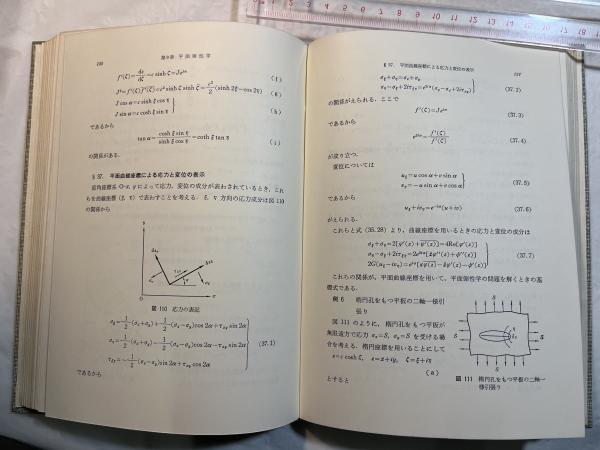 第9章 平面弾性学
f'(ζ)=dz/dζ=c sinh ζ=Je^{iα} (f)
J²=f'(ζ)f'(ζ)=c² sinh ζ sinh ζ=c²/2(cosh 2ξ-cos 2η) (g)
J cos α=c sinh ξ cos η
J sin α=c cosh ξ sin η (h)
であるから
tan α=cosh ξ sin η/sinh ξ cos η=coth ξ tan η (i)
の関係がある.
§37. 平面曲線座標による応力と変位の表示
直角座標系 O-x, y によって応力, 変位の成分が表わされているとき, これ
らを曲線座標 (ξ, η) で表わすことを考える. ξ, η 方向の応力成分は図 110
の関係から
y
O
x
図 110 応力の表記
σξ=1/2(σx+σy)+1/2(σx-σy)cos 2α+τxy sin 2α
ση=1/2(σx+σy)-1/2(σx-σy)cos 2α-τxy sin 2α (37.1)
τξη=-1/2(σx-σy)sin 2α+τxy cos 2α
であるから
§37. 平面曲線座標による応力と変位の表示
σξ+ση=σx+σy
ση-σξ+2iτξη=e^{2iα}(σy-σx+2iτxy)
の関係がえられる. ここで
f'(ζ)=Je^{iα} (37.3)
であるから
e^{2iα}=f'(ζ)/f'(ζ) (37.4)
が成り立つ.
変位については
uξ=u cos α+v sin α
vη=-u sin α+v cos α (37.5)
であるから
uξ+ivη=e^{-iα}(u+iv) (37.6)
がえられる.
これらと式 (35.28) より, 曲線座標を用いるときの応力と変位の成分は
(37.7)
これらの関係が, 平面曲線座標を用いて, 平面弾性学の問題を解くときの基
礎式である.
例 6 楕円孔をもつ平板の二軸一様引
張り
図 111 のように, 楕円孔をもつ平板が
無限遠方で応力 σx=S, σy=S を受ける場
合を考える. 楕円座標を用いることにして
z=c cosh ζ, z=x+iy, ζ=ξ+iη
(a)
とすると
S
図 111 楕円孔をもつ平板の二軸一
様引張り